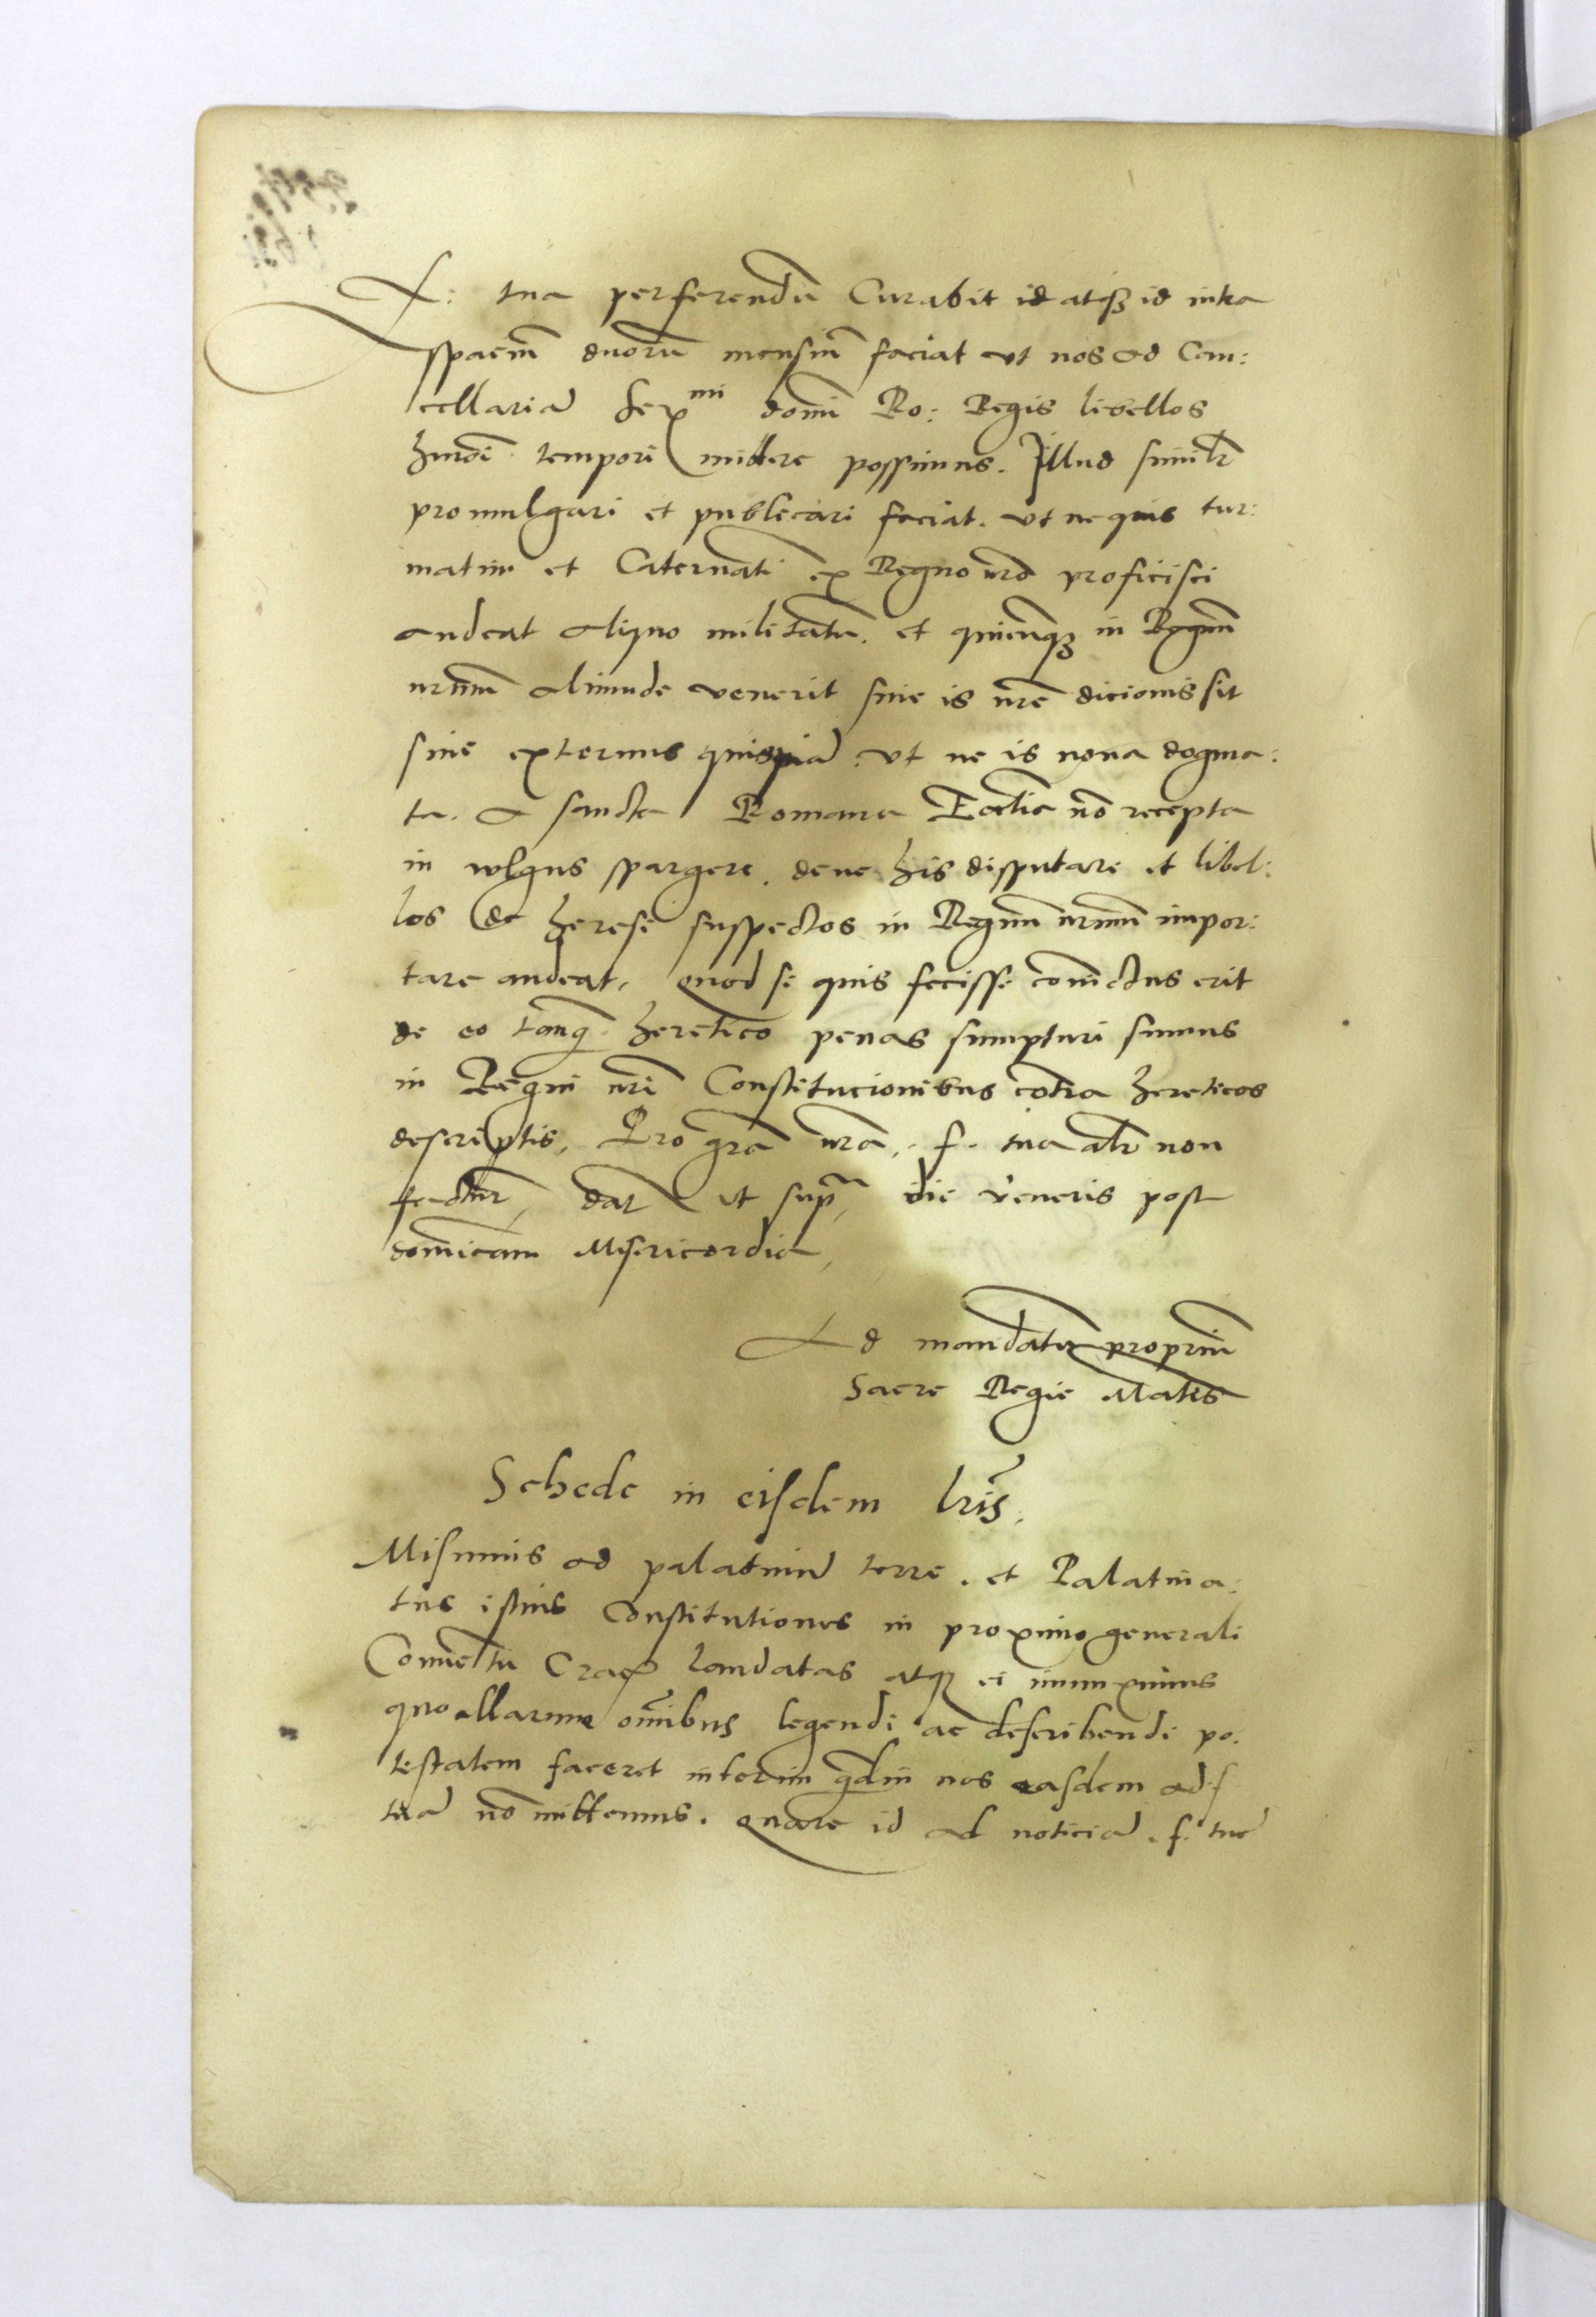 F: tua perferendū Curabit id atqꝫ id intra
spaciū duorū mensiū faciat vt nos ad Can:
cellariā Serᵐⁱ domī Ro: Regis libellos
hmōi tempori mittere possimus. Illud similr̄
promulgari et publicari faciat. vt ne quis tur:
matim et Caternatī ex Regno nr̄o proficisci
audeat aliquo militatū. et quicunqꝫ in Regnū
nrūm aliunde venerit siue is nr̄e dicionis sit
siue externus quispiā. vt ne is noua dogma:
ta. a sancta Romana Ecclīa nō recepta
in vulgus spargere. de ue his disputare et libel:
los de heresi suspectos in Regnū nrūm impor:
tare audeat, quod si quis fecisse conuictus erit
de eo tanq̄ heretico penas sumpturi sumus
in Regni nr̄i Constitucionibus cōtra hereticos
descriptis, Pro gr̄a nr̄a, f. tua alr̄ non
factur̄, dat̄ vt sup̄ᵃ, die veneris post
domīcam Misericordia,
Ad mandatū propriū
Sacre Regie Mat̄is
Schede in eisdem lr̄is,
Misimus ad palatinū terre. et Palatina:
tus istius Constitutiones in proximo generali
Conuētu Crac̄ laudatas atqꝫ ei iniunximus
quo illarum om̄ibus legendi ac describendi po:
testatem faceret interim q̄din nos easdem ad f
tuā nō mittemus. quare id ad noticiā. f. tue